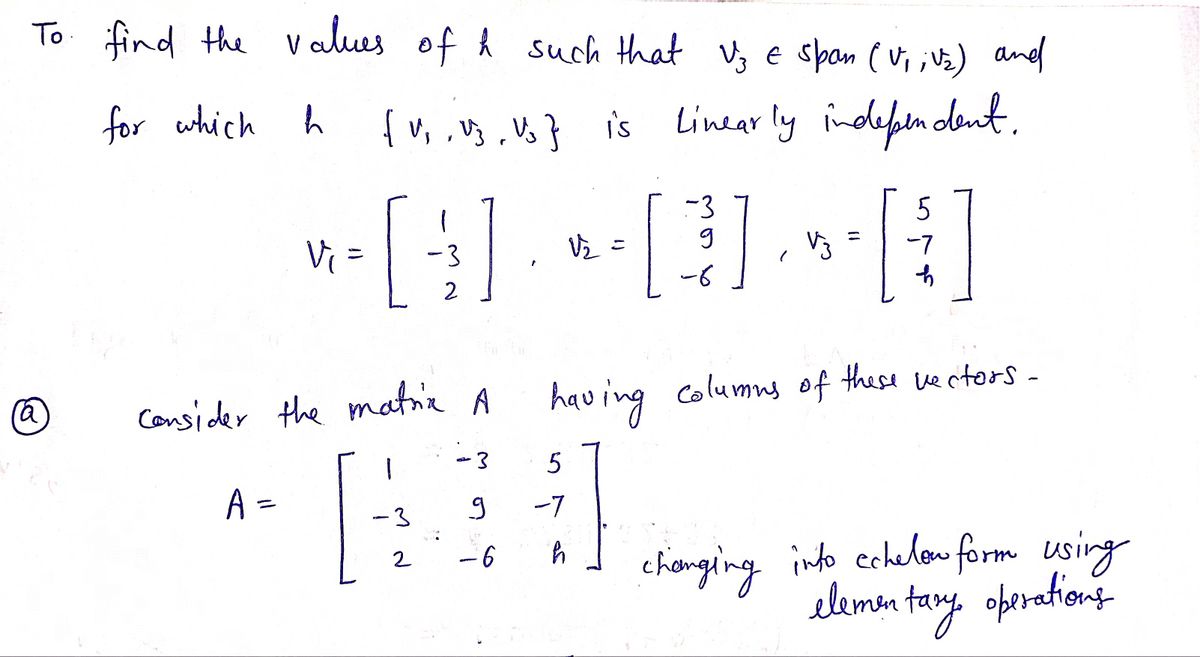 To find the values of h such that v₃ ∈ span (v₁ ; v₂) and
for which h { v₁ , v₃ , v₃ } is Linearly independent.
v₁ = [ 1 -3 2 ] , v₂ = [ -3 9 -6 ] , v₃ = [ 5 -7 h ]
(a) Consider the matrix A having columns of these vectors -
A = [ 1 -3 5
-3 9 -7
2 -6 h ].
changing into echelow form using
elementary operations